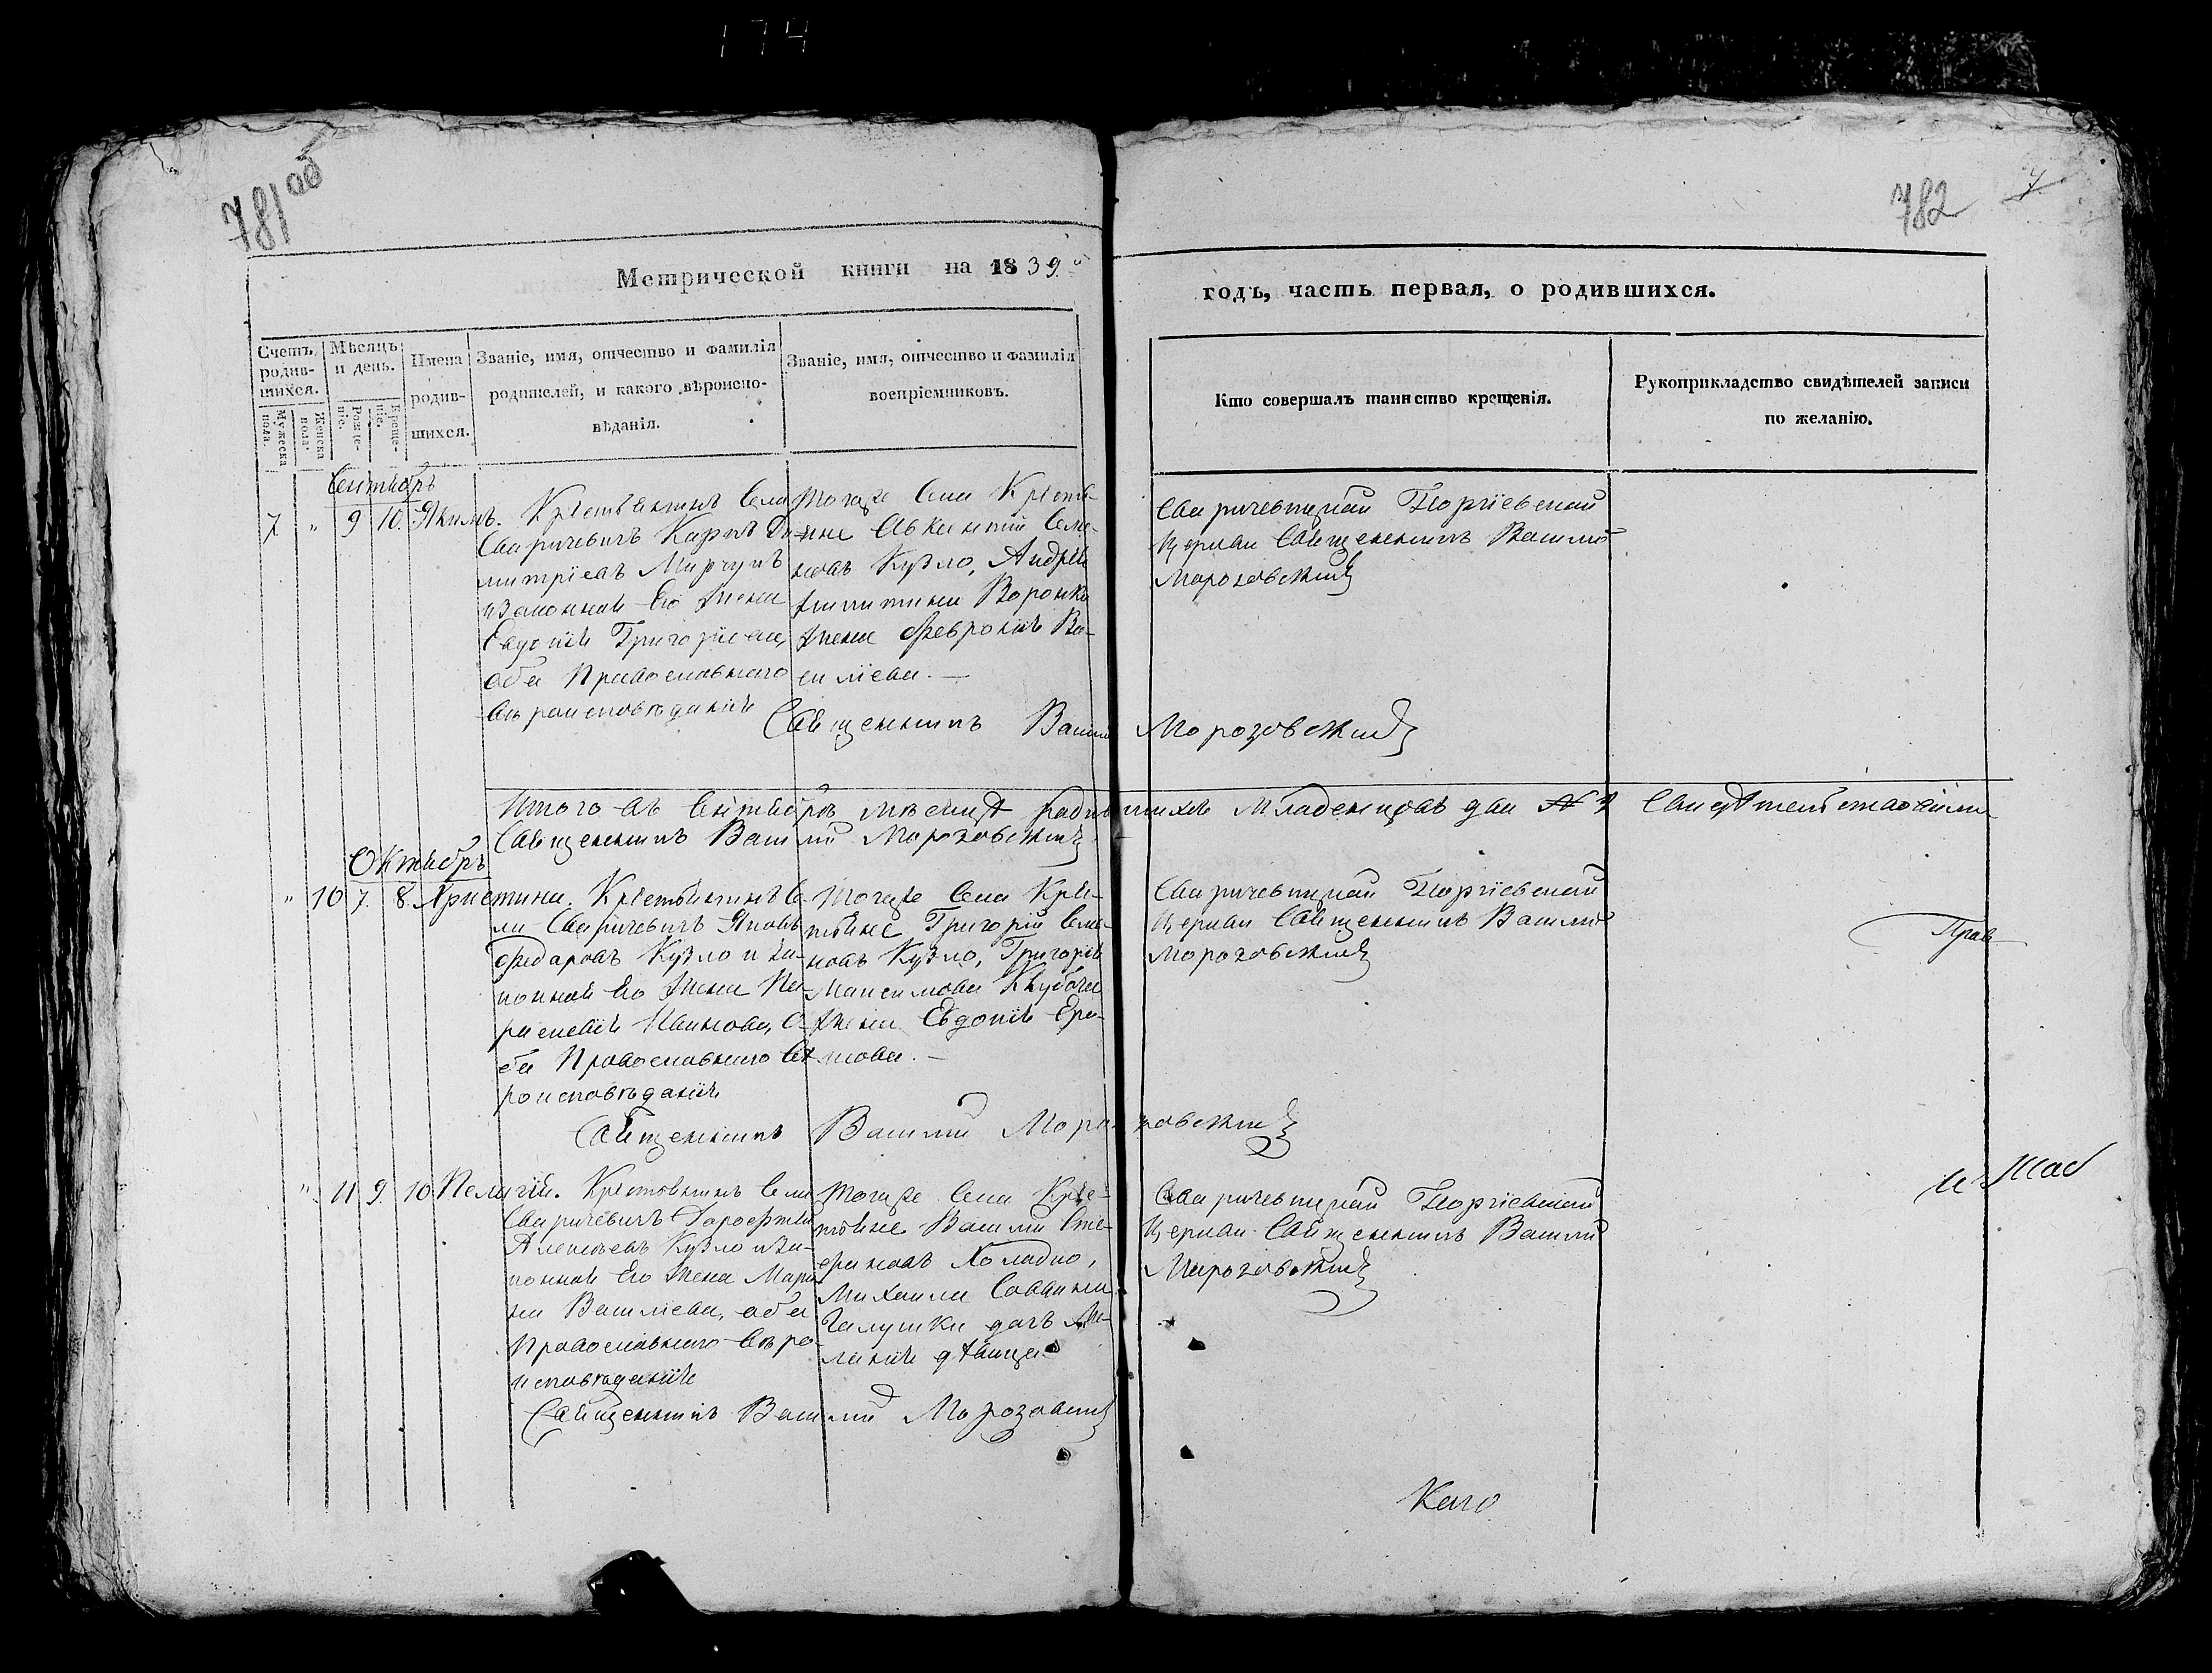 174
781 об
782
7
Метрической книги на 1839й
годъ, часть первая, о родившихся.
Счетъ родив-
шихся.
Мужеска пола.
Женска пола.
Мѣсяцъ и день.
Рожде-
ніе.
Креще-
ніе.
Имена
родив-
шихся.
Званіе, имя, отчество и фамилія
родителей, и какого вѣроиспо-
вѣданія.
Званіе, имя, отчество и фамилія
воспріемниковъ.
Кто совершалъ таинство крещенія.
Рукоприкладство свидѣтелей записи
по желанію.
Сентябрь
7 " 9 10. Якимъ.
Крестьянинъ Села
Сваричевичъ Карпъ Ди-
митріевъ
и законная Его Жена
Евдокія Григоріева,
оба Православнаго
вѣроисповѣданія
Тогоже Села Крестя-
не Авксентій Семе-
новъ Кузло, Андрея
Воронка
Жена Февронія Ва-
силіева. —
Сваричевицкой Георгіевской
Церкви Священникъ Василій
Морозовскій
Священникъ Василій Морозовскій
Итого въ Сентябрѣ мѣсяцѣ родившихся Младенцовъ два №
Священникъ Василій Морозовскій
Октябрь
" 10 7. 8. Христина.
Крестьянинъ Се-
ла Сваричевичъ Яковъ
Федоровъ Кузло и за-
конная Его Жена Па-
раскевія Иванова, о-
ба Православнаго вѣ-
роисповѣданія
Тогоже Села Крес-
тяне Григорій Семе-
новъ Кузло, Григорія
Максимова
Жена Евдокія Ера-
мова. —
Сваричевицкой Георгіевской
Церкви Священникъ Василій
Морозовскій
Прав-
Священникъ Василій Морозовскій
" 11 9. 10 Пелагія.
Крестьянинъ Села
Сваричевичъ Дорофтей
Алексѣевъ Кузло и за-
конная Его Жена Мари-
на Василіева, оба
Православнаго вѣро-
исповѣданія
Тогоже Села Крес-
тяне Василій Сте-
фановъ Холадко,
Михаила Саввина
Галушки дочь Ме-
ланія дѣвица
Сваричевицкой Георгіевской
Церкви Священникъ Василій
Морозовскій
Священникъ Василій Морозовскій